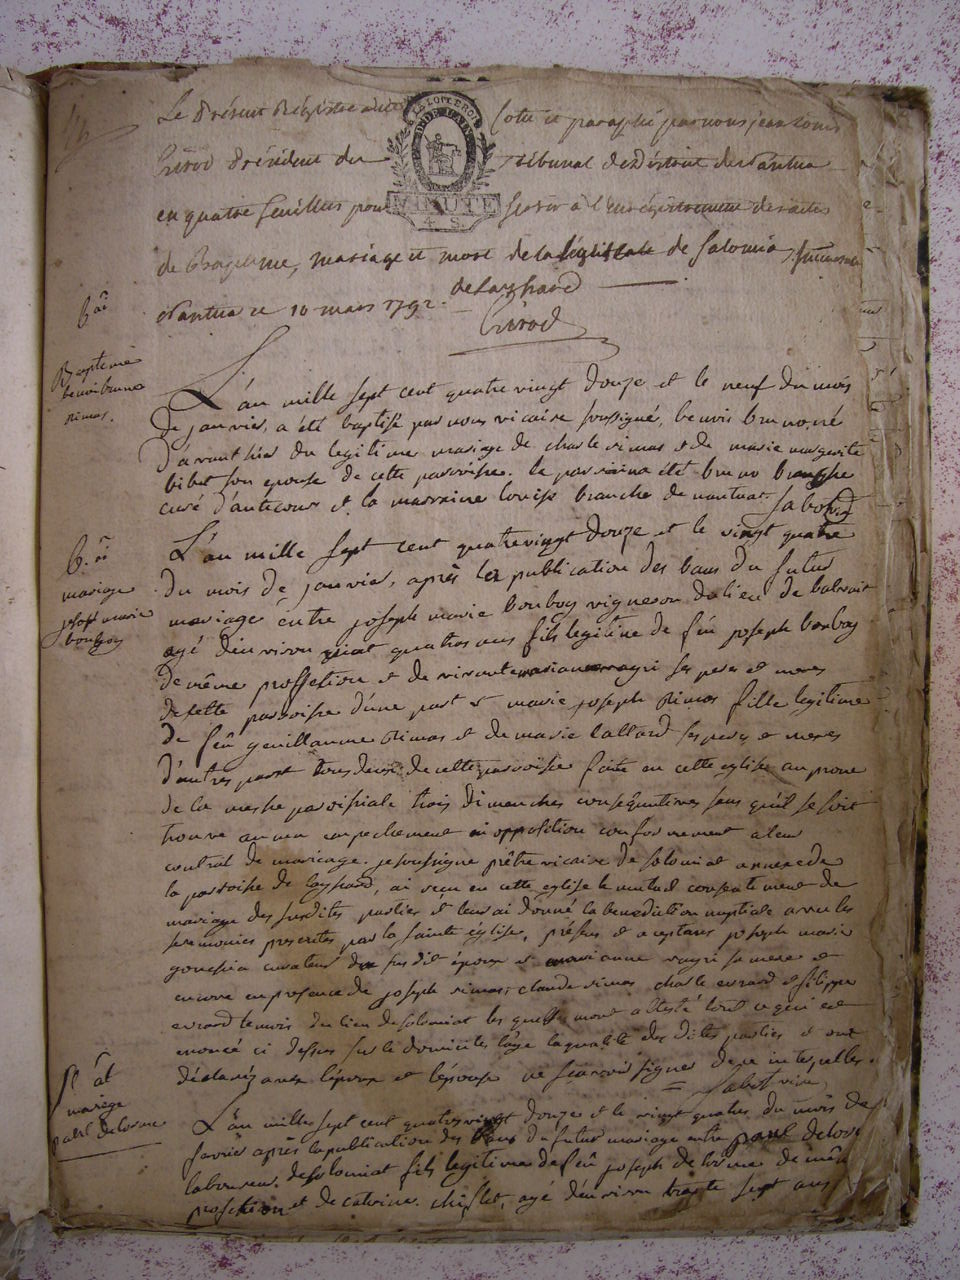 Le présent Registre a été Cotté et paraphé par nous jean Louis
Girod Président du tribunal de District de Nantua
LA LOI ET LE ROI
DEP. DE L'AIN
MINUTE
4 S.
en quatre feuillets pour servir à l'enrégistrement des actes
de Baptême, mariage et mort de la de Solomia, succursale
de Leyssard
Nantua ce 10 mars 1792. Girod
Bapteme
benoi bruno
nimos.
L'an mille sept cent quatre vingt douze et le neuf du mois
de janvier, a été baptisé par nous vicaire soussigné, benois bruno, né
d'avant hier du legitime mariage de charle nimos et de marie margerite
bibet son epouse de cette paroisse. le parrain a été bruno branche
curé d'antecour et la marraine louise branche de nantua. Sabot vic
mariage
joseph marie
bonboy
L'an mille sept cent quatre vingt douze et le vingt quatre
du mois de janvier, après la publication des bans du futur
mariage entre joseph marie bonboy vigneron du lieu de balvait
agé d'environ quatre ans fils legitime de feu joseph bonboy
de même proffession et de vivante marianne ragri ses peres et meres
de cette paroisse d'une part et marie joseph nimos fille legitime
de feu guillaume nimos et de marie lallard ses peres et meres
d'autres part tous deux de cette paroisse faite en cette eglise au prone
de la messe paroissiale trois dimanches consequutives sans qu'il se soit
trouvé aucun empechement ni opposition conformement a leur
contrat de mariage. je soussigné prêtre vicaire de solomiat annexe de
la paroisse de leyssard, ai recu en cette eglise le mutuel consentement de
mariage des susdites parties et leur ai donné la benediction nuptiale avec les
seremonies prescrites par la sainte eglise, présens et aceptans joseph marie
goussia curateur du susdit époux et marianne ragri sa mere et
encore en presence de joseph nimos, claude nimos charle evrard et filippe
evrard temoins du lieu de solomiat les quels m'ont attesté tout ce qui est
enoncé ci dessus sur le domiciles l'age la qualité des dites parties et ont
déclaré avec l'époux et l'épouse ne scavoir signer de ce interpellés.
Sabot vicaire
mariage
paul delorme
L'an mille sept cent quatre vingt douze et le vingt quatre du mois de
favrier après la publication des bans du futur mariage entre paul delorme
laboureur de solomiat fils legitime de feu joseph delorme de même
profession et de catrine chiflet, agé d'environ trente sept ans